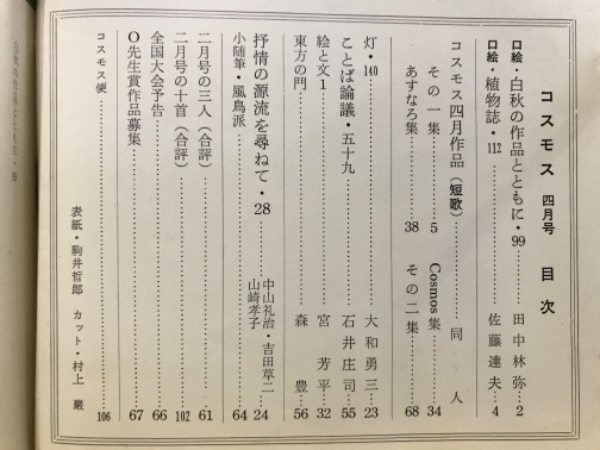 コスモス 四月号 目次
口絵・白秋の作品とともに・99……田中林弥…2
口絵・植物誌・112……佐藤達夫…4
コスモス四月作品(短歌)……同人
その一集……5 Cosmos集……34
あすなろ集……38 その二集……68
灯・140……大和勇三…23
ことば論議・五十九……石井庄司…55
絵と文1……宮芳平…32
東方の門……森豊…56
抒情の源流を尋ねて・28……中山礼治・吉田草二…24
小随筆・風鳥派……山崎孝子…64
二月号の三人(合評)……61
二月号の十首(合評)……102
全国大会予告……66
O先生賞作品募集……67
コスモス便……106
表紙・駒井哲郎 カット・村上巌